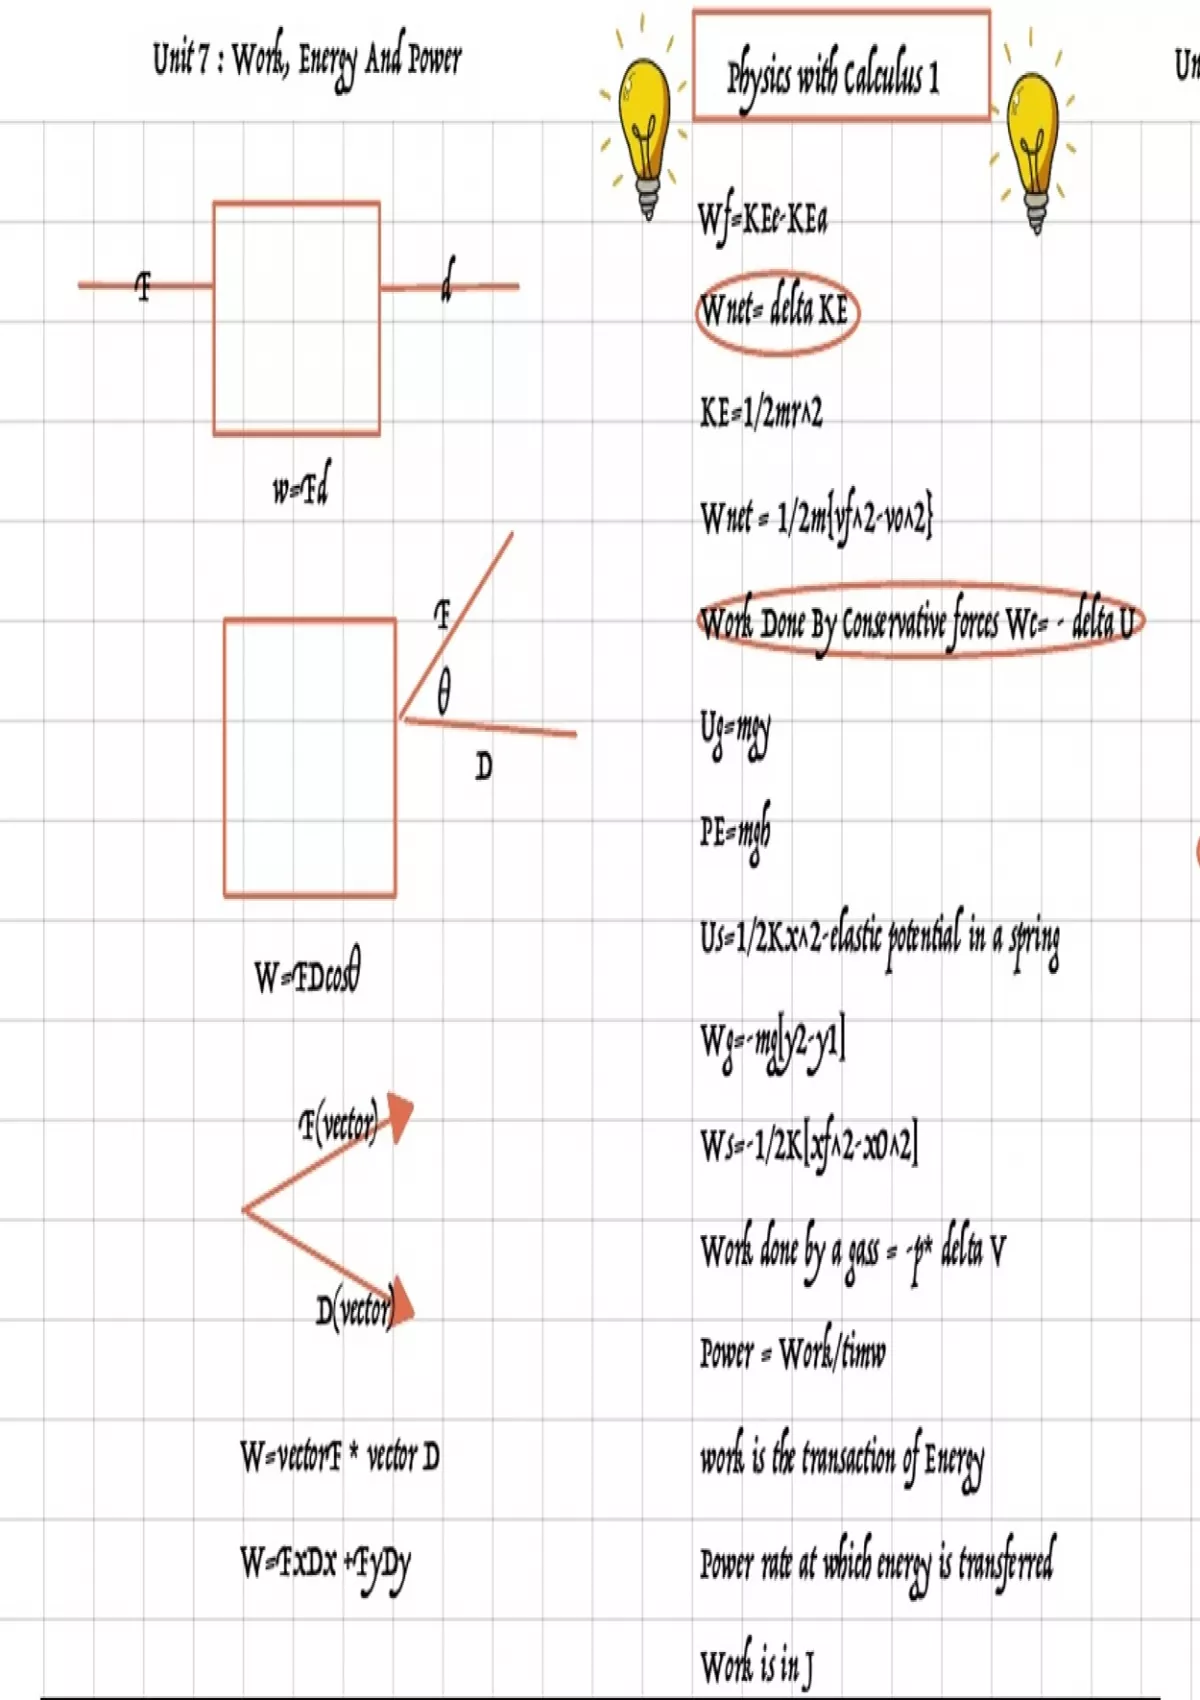 Unit 7 : Work, Energy And Power
Physics with Calculus 1
Un
F
d
w=Fd
F
θ
D
W=FDcosθ
F(vector)
D(vector)
W=vectorF * vector D
W=FxDx +FyDy
Wf=KEe-KEa
Wnet= delta KE
KE=1/2mr^2
Wnet = 1/2m{vf^2-vo^2}
Work Done By Conservative forces Wc= - delta U
Ug=mgy
PE=mgh
Us=1/2Kx^2-elastic potential in a spring
Wg=-mg[y2-y1]
Ws=-1/2K[xf^2-x0^2]
Work done by a gass = -p* delta V
Power = Work/timw
work is the transaction of Energy
Power rate at which energy is transferred
Work is in J